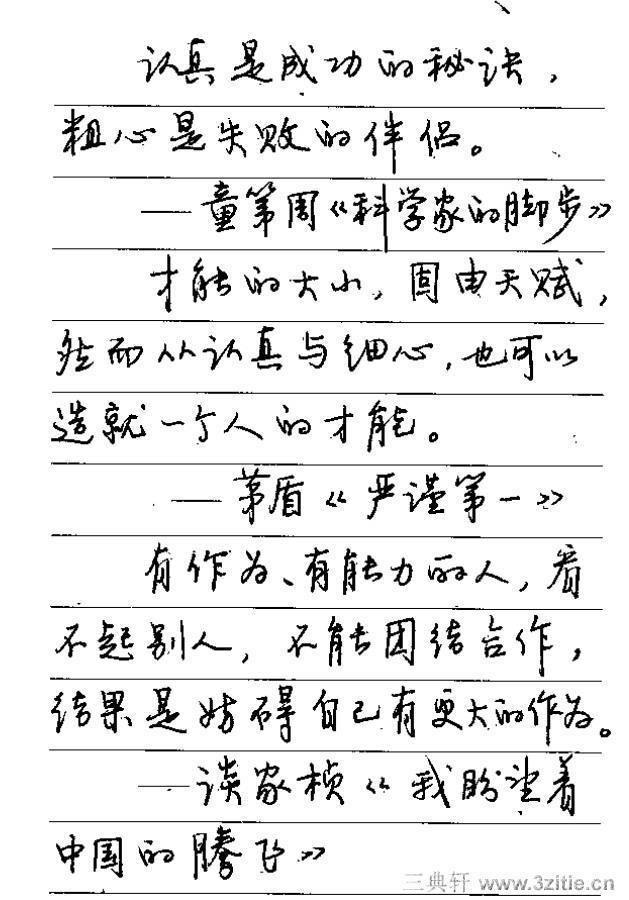 认真是成功的秘诀，
粗心是失败的伴侣。
——童第周《科学家的脚步》
才能的大小，固由天赋，
然而从认真与细心，也可以
造就一个人的才能。
——茅盾《严谨第一》
有作为、有能力的人，看
不起别人，不能团结合作，
结果是妨碍自己有更大的作为。
——谈家桢《我盼望着
中国的腾飞》
三典轩 www.3zitie.cn